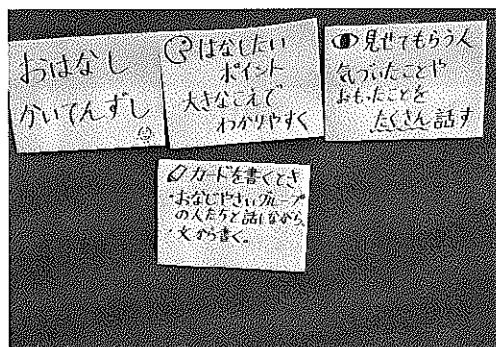 おはなし
かいてんずし
はなしたい
ポイント
大きなこえで
わかりやすく
見せてもらう人
気づいたことや
おもったことを
たくさん話す
カードを書くとき
・おなじやさいグループ
の人たちと話しながら、
・文から書く。